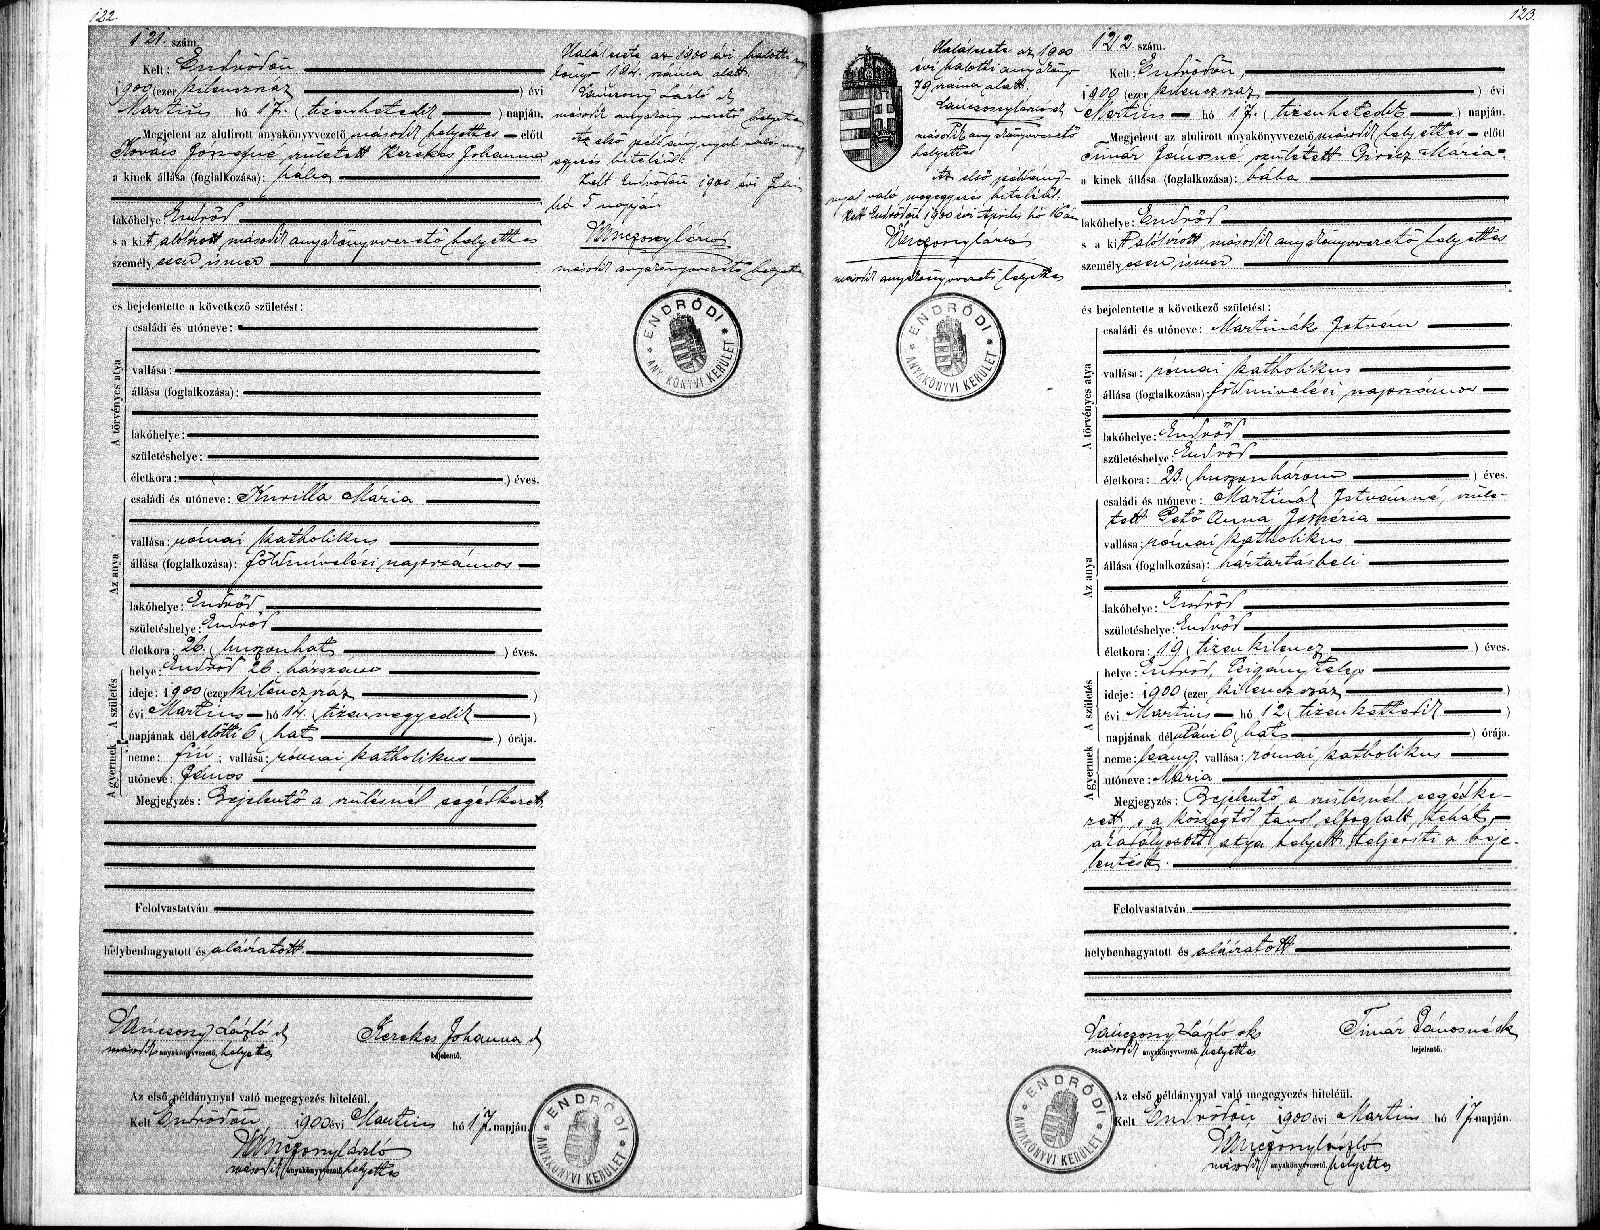 122.
121. szám.
Kelt: Endrődön
1900 (ezer kilenczszáz ) évi
Martius hó 17. (tizenhetedik ) napján.
Megjelent az alulirott anyakönyvvezető második helyettes előtt
Kovács Józsefné, született Kerekes Johanna
a kinek állása (foglalkozása): bába
lakóhelye: Endrőd
s a kit alólirott, második anyakönyvvezető helyettes
személyesen ismer
és bejelentette a következő születést:
A törvényes atya
családi és utóneve:
vallása:
állása (foglalkozása):
lakóhelye:
születéshelye:
életkora: ( ) éves.
Az anya
családi és utóneve: Kurilla Mária
vallása: római katholikus
állása (foglalkozása): földmívelési napszámos
lakóhelye: Endrőd
születéshelye: Endrőd
életkora: 26. (huszonhat ) éves.
A születés
helye: Endrőd 26. házszám
ideje: 1900 (ezer kilenczszáz )
évi Martius hó 14. (tizennegyedik )
napjának délelőtti 6 (hat ) órája.
A gyermek
neme: fiú; vallása: római katholikus
utóneve: János
Megjegyzés: Bejelentő a szülésnél segédkezett.
Felolvastatván
helybenhagyatott és aláiratott.
Vánczony László sk
második anyakönyvvezető helyettes
Kerekes Johanna sk
bejelentő.
Az első példánynyal való megegyezés hiteléül.
Kelt Endrődön, 1900 évi Martius hó 17 napján.
Vánczony László
második anyakönyvvezető helyettes
ENDRŐDI
ANYAKÖNYVI KERÜLET
Halálesete az 1900 évi halotti anya
könyv 194. száma alatt.
Vánczony László sk
második anyakönyvvezető helyettes
Az első példánynyal való meg
egyezés hiteléül.
Kelt Endrődön 1900 évi Juli
hó 5 napján
Vánczony László
második anyakönyvvezető helyettes
ENDRŐDI
ANYAKÖNYVI KERÜLET
123.
Halálesete az 1900
évi halotti anyakönyv
79 száma alatt.
Vánczony László sk
második anyakönyvvezető
helyettes
Az első példány-
nyal való megegyezés hiteléül.
Kelt Endrődön 1900 évi Április hó 16án
Vánczony László
második anyakönyvvezető helyettes
ENDRŐDI
ANYAKÖNYVI KERÜLET
122 szám.
Kelt: Endrődön,
1900 (ezer kilenczszáz ) évi
Martius hó 17. (tizenhetedik ) napján.
Megjelent az alulirott anyakönyvvezető második helyettes előtt
Timár Jánosné született Mária
a kinek állása (foglalkozása): bába
lakóhelye: Endrőd
s a kit alólirott, második anyakönyvvezető helyettes
személyesen ismer
és bejelentette a következő születést:
A törvényes atya
családi és utóneve: Martinák István
vallása: római katholikus
állása (foglalkozása): földmivelési napszámos
lakóhelye: Endrőd
születéshelye: Endrőd
életkora: 23. (huszonhárom ) éves.
Az anya
családi és utóneve: Martinák Istvánné, szüle-
tett Pető Anna
vallása: római katholikus
állása (foglalkozása): háztartásbeli
lakóhelye: Endrőd
születéshelye: Endrőd
életkora: 19 (tizenkilencz ) éves.
A születés
helye: Endrőd, Czigány telep
ideje: 1900 (ezer kilenczszáz )
évi Martius hó 12 (tizenkettedik )
napjának délutáni 6 (hat ) órája.
A gyermek
neme: leány; vallása: római katholikus
utóneve: Mária
Megjegyzés: Bejelentő a szülésnél segédke-
zett, s a községtől távol elfoglalt, tehát
akadályozott atya helyett teljesiti a beje-
lentést.
Felolvastatván
helybenhagyatott és aláiratott
Vánczony László sk
második anyakönyvvezető helyettes
Timár Jánosné sk
bejelentő.
Az első példánynyal való megegyezés hiteléül.
Kelt Endrődön, 1900 évi Martius hó 17 napján.
Vánczony László
második anyakönyvvezető helyettes
ENDRŐDI
ANYAKÖNYVI KERÜLET